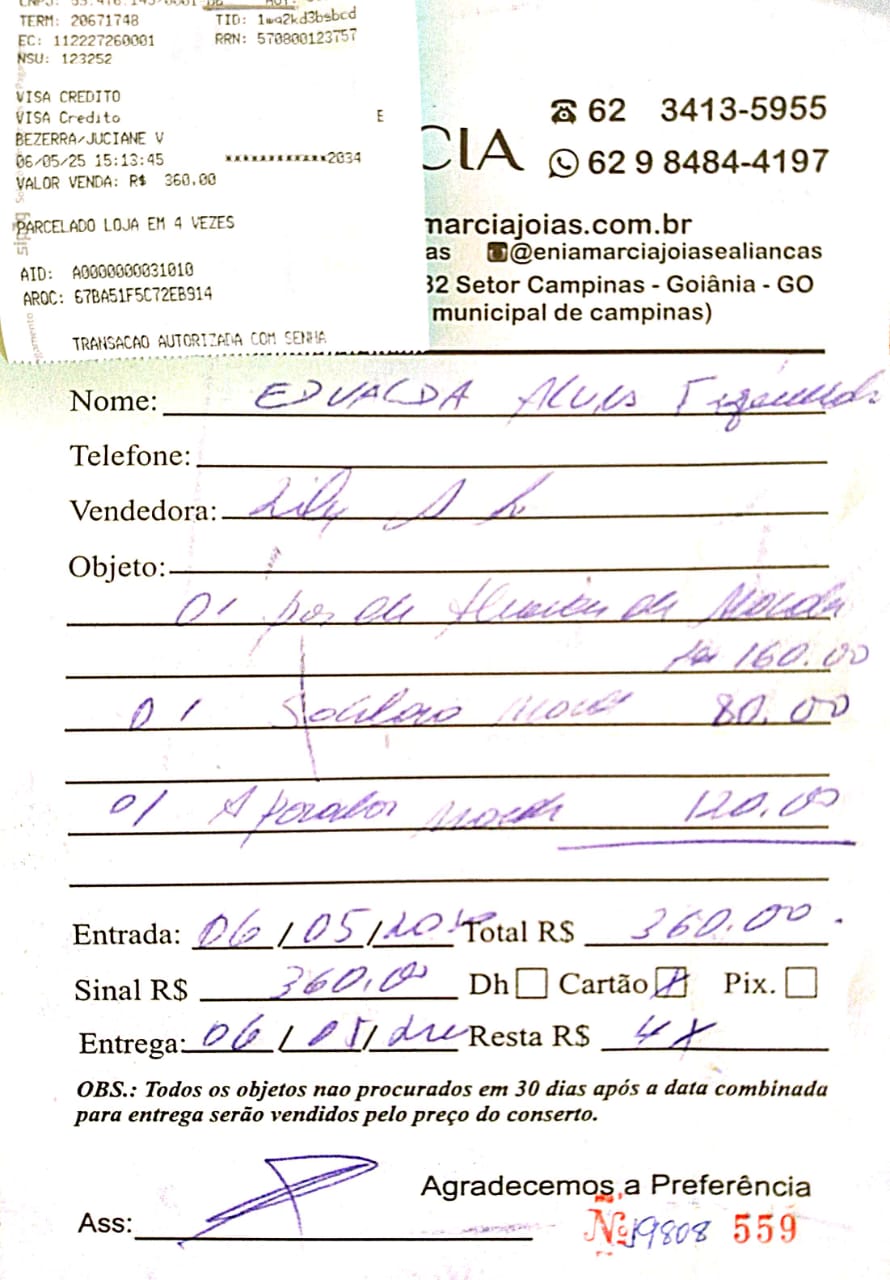 TERM: 20671748 TID: 1wa2kd3bsbcd
EC: 112227260001 RRN: 570800123757
NSU: 123252
VISA CREDITO
VISA Credito E
BEZERRA/JUCIANE V
06/05/25 15:13:45 ************2034
VALOR VENDA: R$ 360,00
PARCELADO LOJA EM 4 VEZES
AID: A0000000031010
ARQC: 67BA51F5C72EB914
TRANSACAO AUTORIZADA COM SENHA
CIA
62 3413-5955
62 9 8484-4197
marciajoias.com.br
as @eniamarciajoiasealiancas
32 Setor Campinas - Goiânia - GO
municipal de campinas)
Nome: EDVALDA Alves
Telefone:
Vendedora:
Objeto:
01 par de de Moeda
160.00
01 80.00
01 Aparador Moeda 120.00
Entrada: 06/05/ Total R$ 360.00
Sinal R$ 360,00 Dh Cartão X Pix.
Entrega: 06/05/ Resta R$ 4x
OBS.: Todos os objetos nao procurados em 30 dias após a data combinada
para entrega serão vendidos pelo preço do conserto.
Agradecemos a Preferência
Ass:
Nº 19808 559